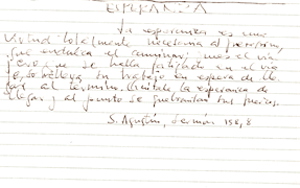 ESPERANZA
La esperanza es una
virtud totalmente necesaria al peregrino,
que endulza el caminar, pues el via
jero que se halla fatigado en el via
je, sobrelleva su trabajo en espera de lle
gar al término. Quítale la esperanza de
llegar y al punto se quebrantan sus fuerzas.
S. Agustín, Sermón 158, 8